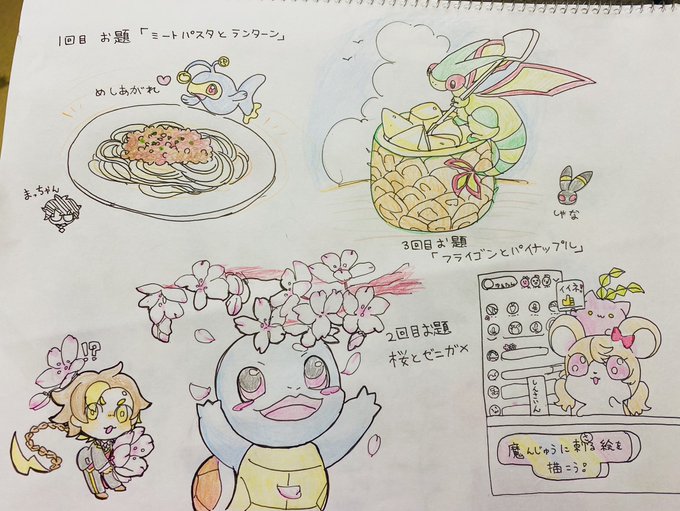 1回目 お題「ミートパスタとランターン」
めしあがれ
まっちゃん
しゃな
3回目お題
「フライゴンとパイナップル」
2回目お題
桜とゼニガメ
!?
イイネ!
しんさいん
魔んじゅうに刺さる絵を
描こう!